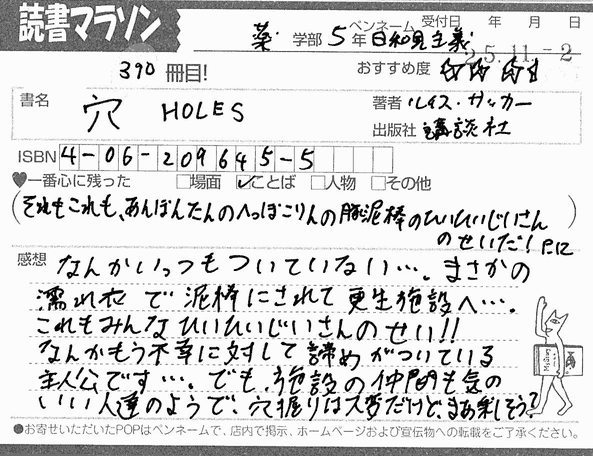 読書マラソン
ペンネーム 受付日 年 月 日
薬 学部 5 年 日和見主義 25.11.-2
390 冊目! おすすめ度
書名 穴 HOLES
著者 ルイス・サッカー
出版社 講談社
ISBN 4-06-209645-5
♥一番心に残った □場面 ☑ことば □人物 □その他
(それもこれも、あんぽんたんのへっぽこりんの豚泥棒のひいひいじいさん
のせいだ! P.12)
感想 なんかいっつもついていない…。まさかの
濡れ衣で泥棒にされて更生施設へ…。
これもみんなひいひいじいさんのせい!!
なんかもう不幸に対して諦めがついている
主人公です…。でも、施設の仲間も気の
いい人達のようで、穴掘りは大変だけど、まあ楽しそう?
●お寄せいただいたPOPはペンネームで、店内で掲示、ホームページおよび宣伝物への転載をご了承ください。